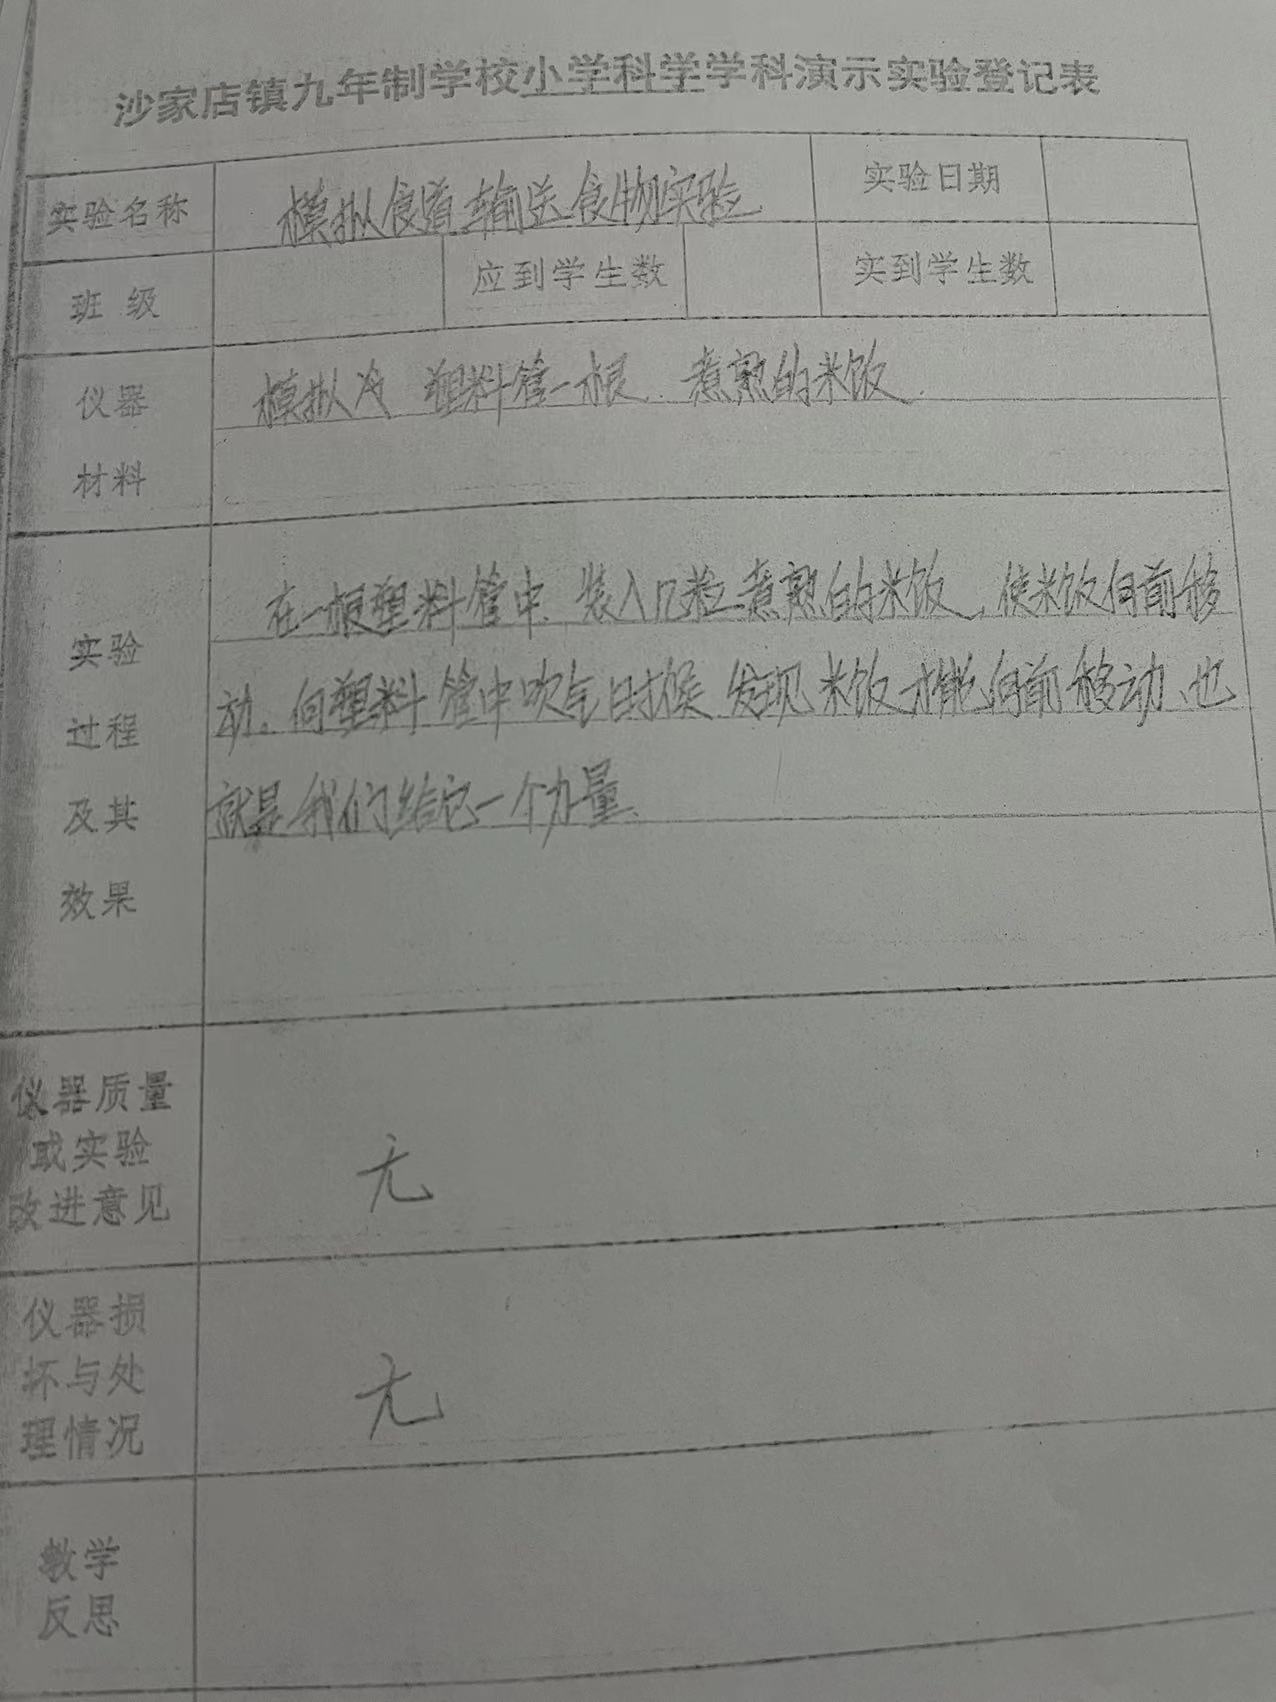 沙家店镇九年制学校小学科学学科演示实验登记表
实验名称 模拟食道输送食物实验 实验日期
班 级 应到学生数 实到学生数
仪器 模拟 塑料管一根 煮熟的米饭
材料
在一根塑料管中、装入几粒煮熟的米饭,使米饭向前移
实验
动。向塑料管中吹气时候 发现米饭才能向前移动、也
过程
就是我们给它一个力量、
及其
效果
仪器质量
或实验
改进意见
无
仪器损
坏与处
理情况
无
教学
反思